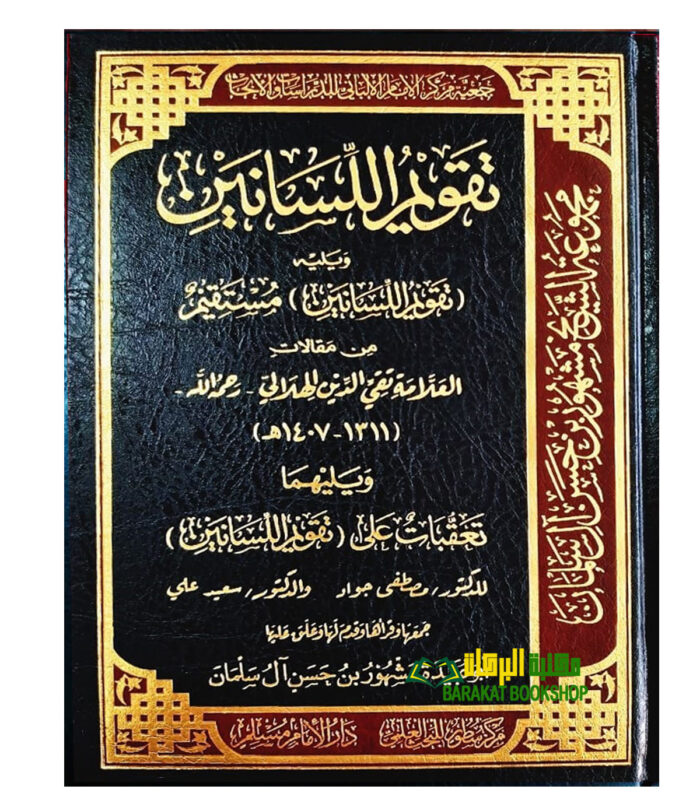 جمعية مركز الإمام الألباني للدراسات والأبحاث
تَقْوِيْمُ اللِّسَانَيْنِ
وَيَليْه
(تَقْوِيْمُ اللِّسَانَيْنِ) مُسْتَقِيْمٌ
مِن مَقَالاتِ
العَلَّامَة تَقِيّ الدِّين الهِلَالِي - رَحِمَهُ اللَّه -
(١٣١١ - ١٤٠٧هـ)
وَيَلِيْهِمَا
تَعَقُّبَاتٌ عَلَى (تَقْوِيْمِ اللِّسَانَيْنِ)
للدكتور/ مصطفى جواد والدكتور/ سعيد علي
جمعها وقرأها وقدم لها وعلق عليها
أبو عبيدة مَشْهُورُ بنُ حَسَن آلُ سَلْمَان
مكتبة البركة
BARAKAT BOOKSHOP
دار الإمام مسلم
مجموعة الشيخ مشهور بن حسن آل سلمان